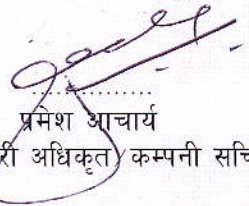 प्रमेश आचार्य
री अधिकृत कम्पनी सचि